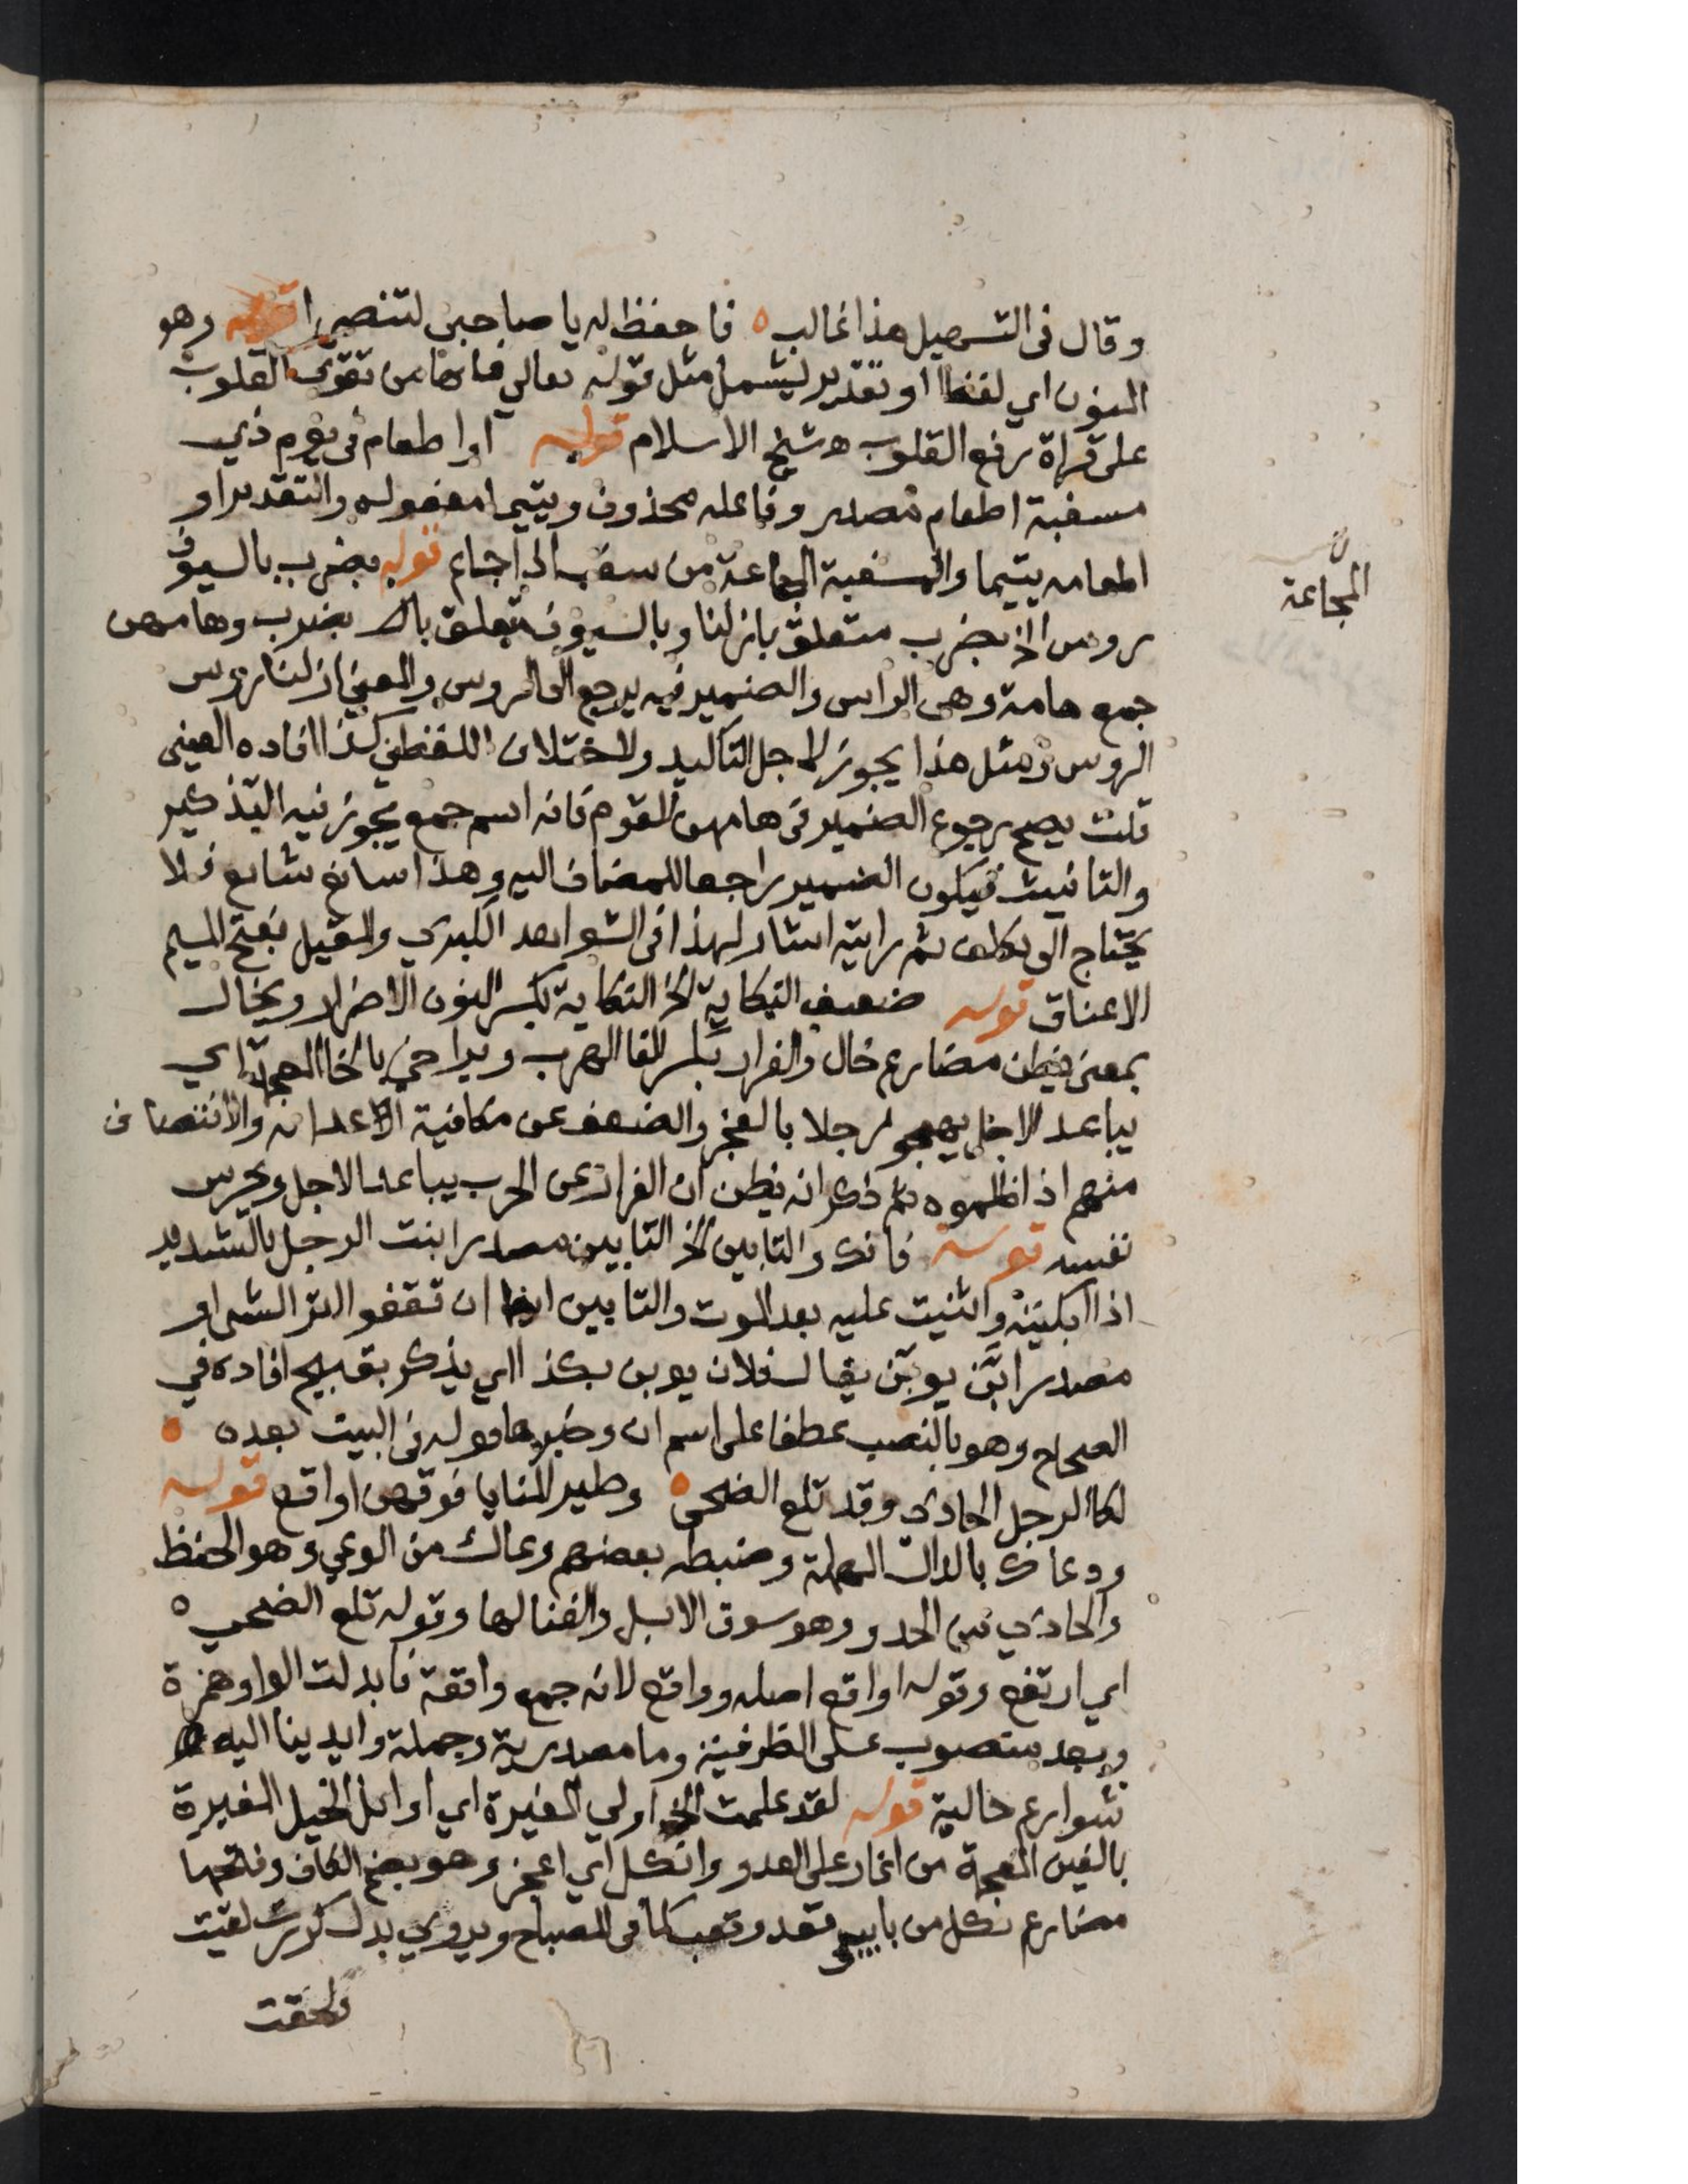 وقال في التسهيل هذا غالب ه فاحفظ له يا صاحبي لتنصرا قوله وهو
المنون اي لفظا او تقدير ليشمل مثل قوله تعالى فانها من تقوى القلوب
على قراة رفع القلوب ه شيخ الاسلام قوله او اطعام في يوم ذي
مسغبة اطعام مصدر وفاعله محذوف ويتيما مفعوله والتقدير او
اطعامه يتيما والمسغبة المجاعة من سغب اي اجاع قوله بضرب بالسيوف
روس الخ بضرب متعلق بازلنا وبالسيوف يتعلق بالـ بضرب وهامهن
جمع هامة وهي الراس والضمير فيه يرجع الى الروس والمعنى ازلنا روس
الروس ومثل هذا يجوز لاجل التاكيد ولاختلاف اللفظين كذا افاده العيني
قلت يصح رجوع الضمير في هامهن للقوم فانه اسم جمع يجوز فيه التذكير
والتانيث فيكون الضمير راجعا للمضاف اليه وهذا سايغ شايع فلا
يحتاج الى تكلف ثم رايته اشار لهذا في الشواهد الكبري والمقيل بفتح الميم
الاعناق قوله ضعيف النكاية الخ النكاية بكسر النون الاضرار ويخال
بمعنى يظن مضارع خال والفرار بكسر الفا الهرب ويراخي بالخا المعجمة اي
يباعد الاجل يهجو رجلا بالعجز والضعف عن مكافية الاعدا نه والانتصاف
منهم اذا ظلموه ثم ذكر انه يظن ان الفرار عن الحرب يباعد الاجل ويحرس
نفسه قوله فانك والتابين الخ التابين مصدر ابنت الرجل بالتشديد
اذا ابكيته واثنيت عليه بعد الموت والتابين ايضا ان تقفو اثر الشي او
مصدر ابن يوبن يقال فلان يوبن بكذا اي يذكر بقبيح افاده في
الصحاح وهو بالنصب عطفا على اسم ان وخبرها قوله في البيت بعده ه
لكالرجل الحادي وقد تلع الضحى ه وطير المنايا فوقهن اواقع قوله
ودعاك بالدال المهملة وضبطه بعضهم وعاك من الوعي وهو الحفظ
والحادي من الحدو وهو سوق الابل والغنا لها وقوله تلع الضحى ه
اي ارتفع وقوله اواقع اصله وواقع لانه جمع واقعة فابدلت الواو همزة
وبعد منصوب على الظرفية وما مصدرية وجملة وايدينا اليه
شوارع حالية قوله لقد علمت الخ اولي المغيرة اي اوائل الخيل المغيرة
بالغين المعجمة من اغار على العدو وانكل اي اعجز وهو بضم الكاف وفتحها
مضارع نكل من بابي قعد وتعب كما في المصباح ويروي بدل كررت لقيت
ولحقت
المجاعة